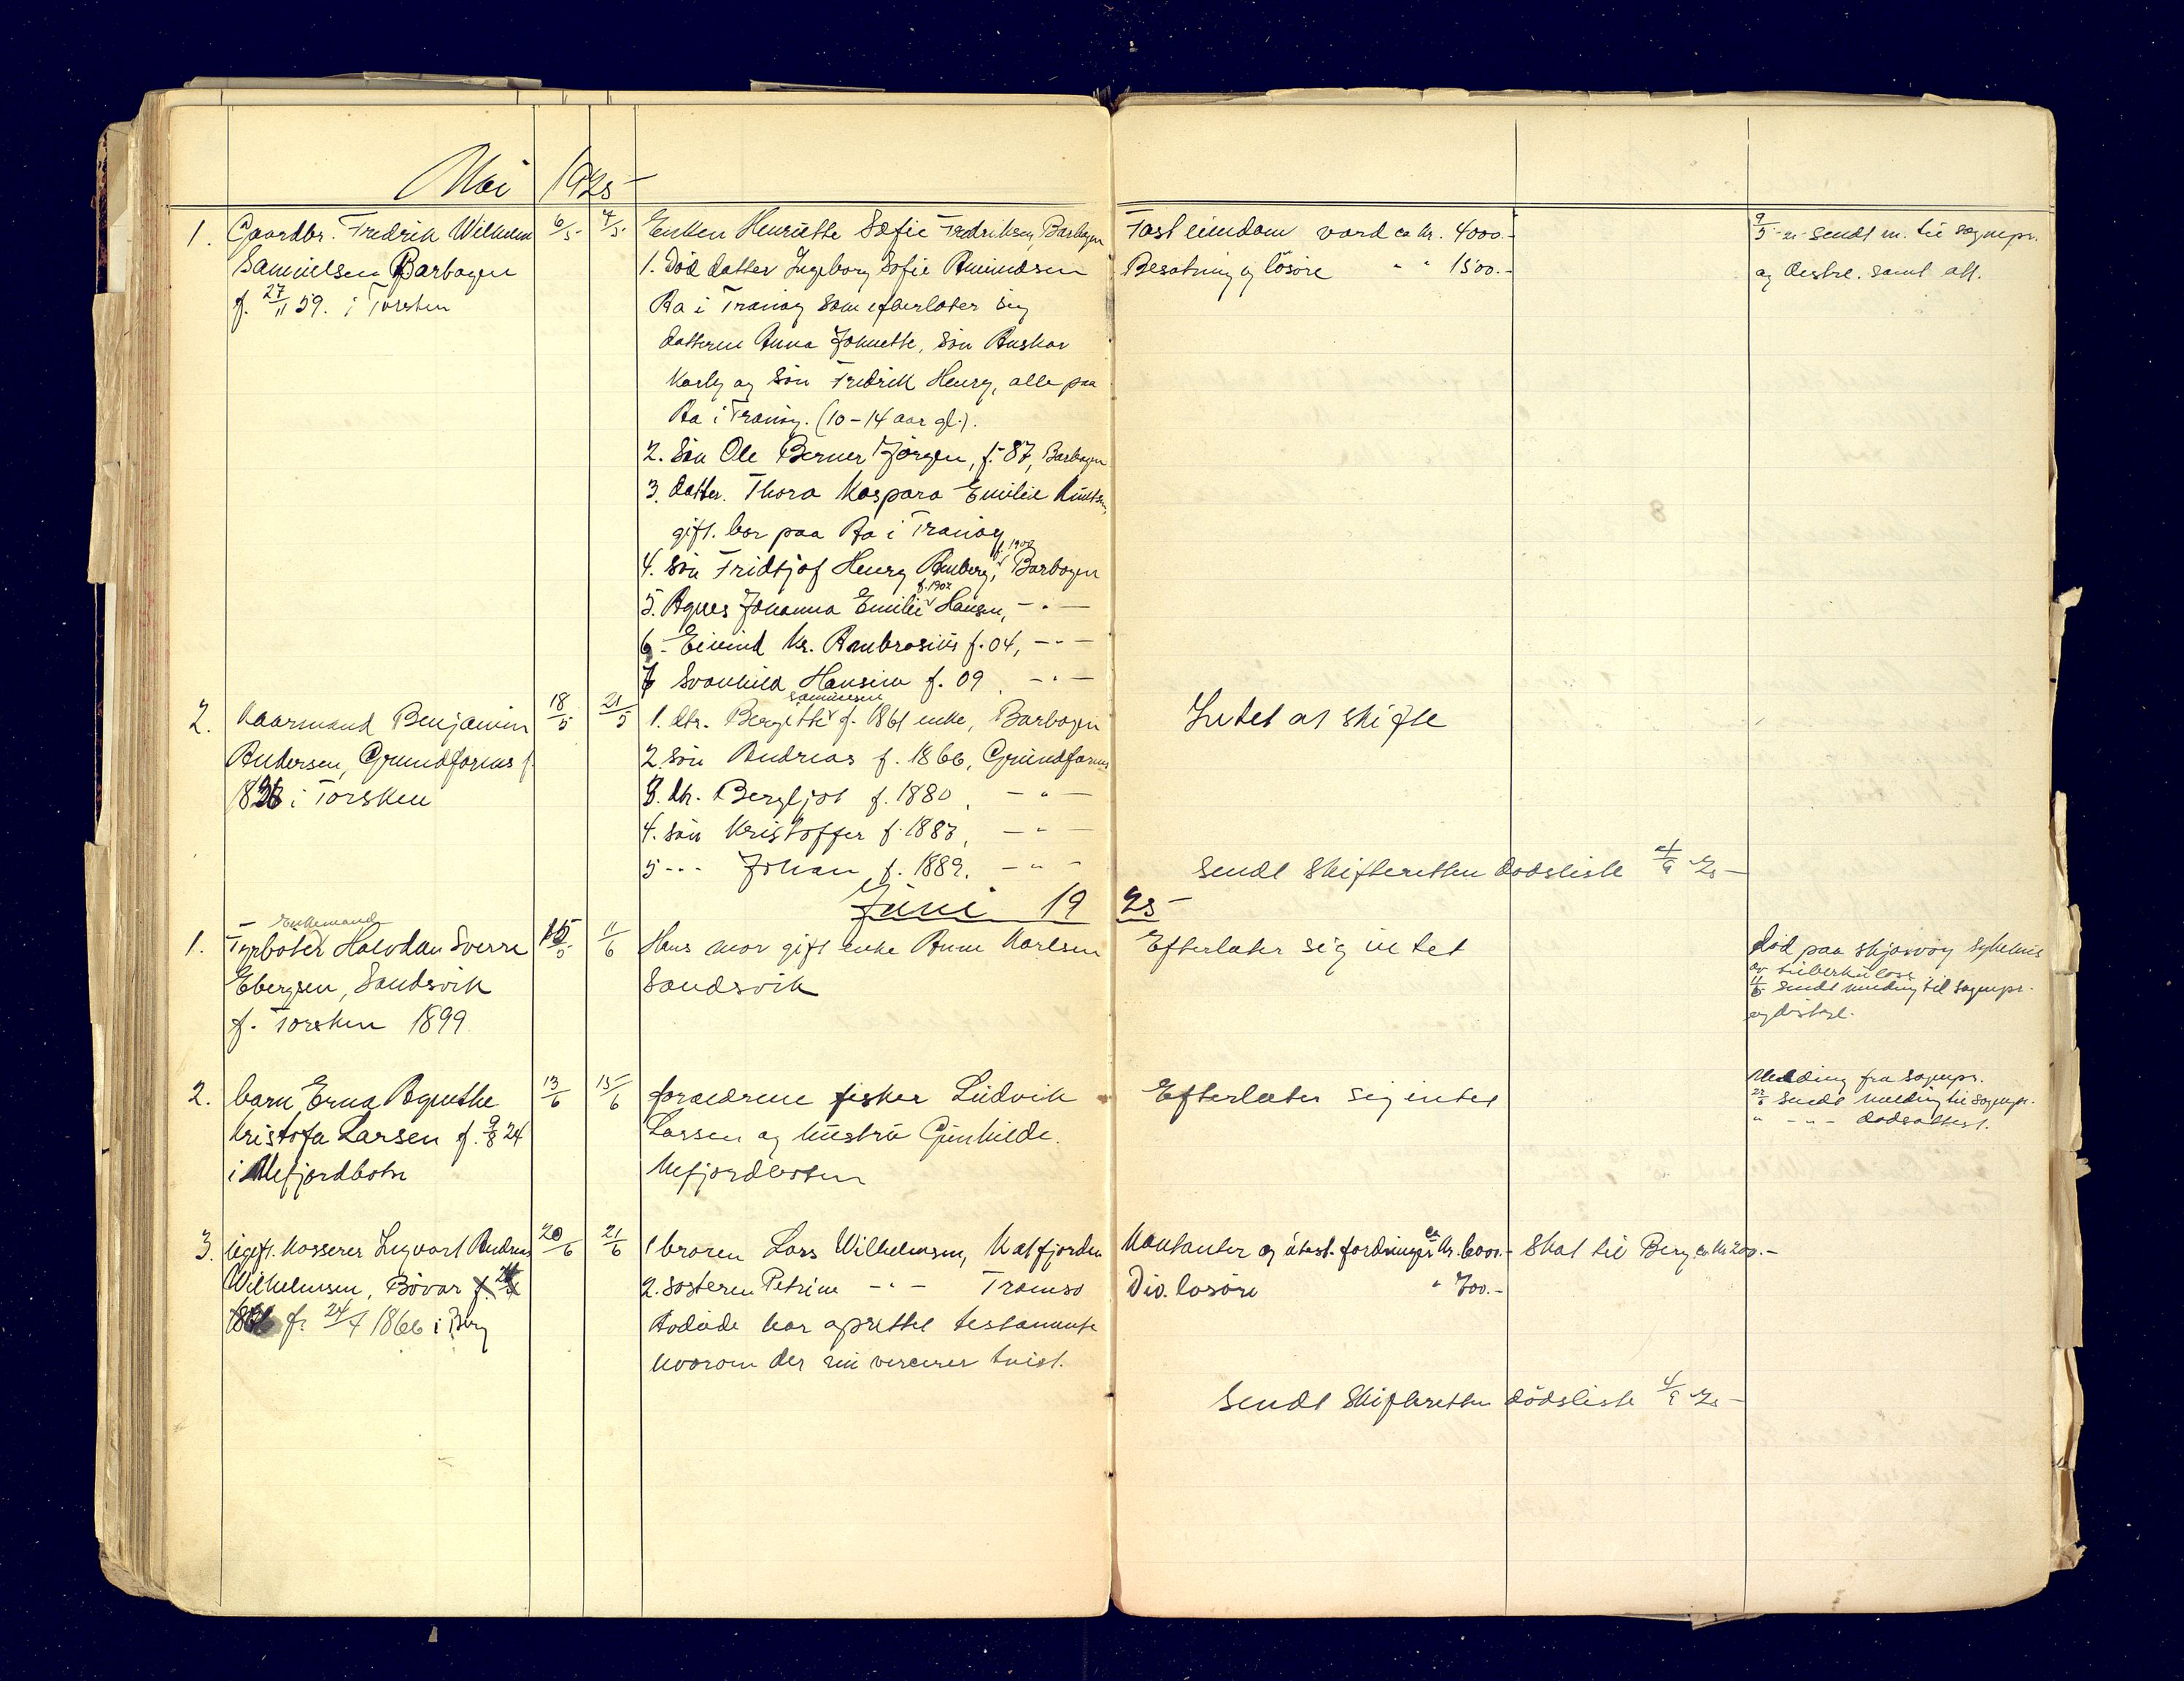 Mai 1925
1. Gaardbr. Fredrik Wilhelm 6/5 7/5 Enken Henriette Sofie Fredriksen, Barbogen Fast eiendom værd ca kr. 4000.- 9/5 25 sendt m. til sognepr.
Samuelsen Barbogen 1. Død datter Ingeborg Sofie Amundsen Besætning og løsøre " " 1500.- og distrl. samt att.
f. 27/11 59. i Torsken Aa i Tranøy som efterlater sig
datteren Anna Johnette, søn Anskar
Karly og søn Fredrik Henry, alle paa
Aa i Tranøy. (10-14 aar gl.).
2. Søn Ole Berner Jørgen, f. 87, Barbogen
3. datter. Thora Kaspara Emilie Knutsen,
gift. bor paa Aa i Tranøy
4. søn Fridtjof Henry Amberg, f. 1900 Barbogen
5. Agnes Johanna Emilie f. 1902 Hansen, - " -
6 - Eivind Kr. Ambrosius f. 04, - " -
7 Svanhild Hansine f. 09, - " -
2. Kaarmand Benjamin 18/5 21/5 1. dtr. Bergitte Samuelsen f. 1861 enke, Barbogen Intet at skifte
Andersen, Grundfarnes f. 2. søn Andreas f. 1866, Grundfarnes
i Torsken 3. dtr. Bergljot f. 1880, - " -
4. søn Kristoffer f. 1883, - " -
5 - - - Johan f. 1889. - " - Sendt Skifteretten dødsliste 4/9 25
Juni 1925
1. Enkemand Halvdan Sverre 15/5 11/6 Hans mor gift enke Anne Karlsen Efterlater sig intet Død paa Skjærvøy Sykehus
Ebergsen, Sandsvik Sandsvik av tuberkulose
f. Torsken 1899 11/6 sendt melding til sognepr.
og distrl.
2. barn Erna Agnethe 13/6 15/6 forældrene fisker Ludvik Efterlater sig intet Melding fra sognepr.
Kristofa Larsen f. 9/8 24 Larsen og hustru Gunhilde. 23/6 sendt melding til sognepr.
i Mefjordbotn Mefjordbotn " - " - dødsattest.
3. Ugift. kasserer Ingvart Andreas 20/6 21/6 1 broren Lars Wilhelmsen, Katfjorden Kontanter og utest. fordringer ca kr. 6000.- Skat til Berg ca kr 200.-
Wilhelmsen, Bøvær 2. søsteren Petrine - " - Tromsø Div. løsøre " 700.-
f. 24/4 1866 i Berg Avdøde har oprettet testamente
hvorom der nu verserer tvist.
Sendt Skifteretten dødsliste 4/9 25